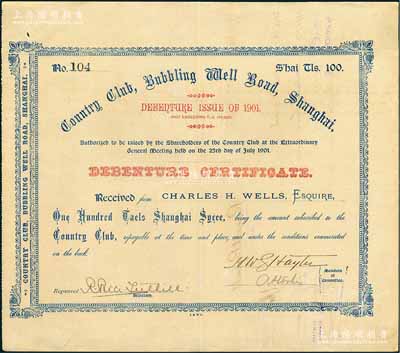 No. 104
Shai Tls. 100.
Country Club, Bubbling Well Road, Shanghai.
DEBENTURE ISSUE OF 1901.
Authorized to be raised by the Shareholders of the Country Club at the Extraordinary
General Meeting held on the 23rd day of July 1901.
DEBENTURE CERTIFICATE.
Received from CHARLES H. WELLS, ESQUIRE,
One Hundred Taels Shanghai Sycee, being the amount subscribed to the
Country Club, repayable at the time and place, and under the conditions enumerated
on the back.
Members
of
Committee.
COUNTRY CLUB BUBBLING WELL ROAD, SHANGHAI.